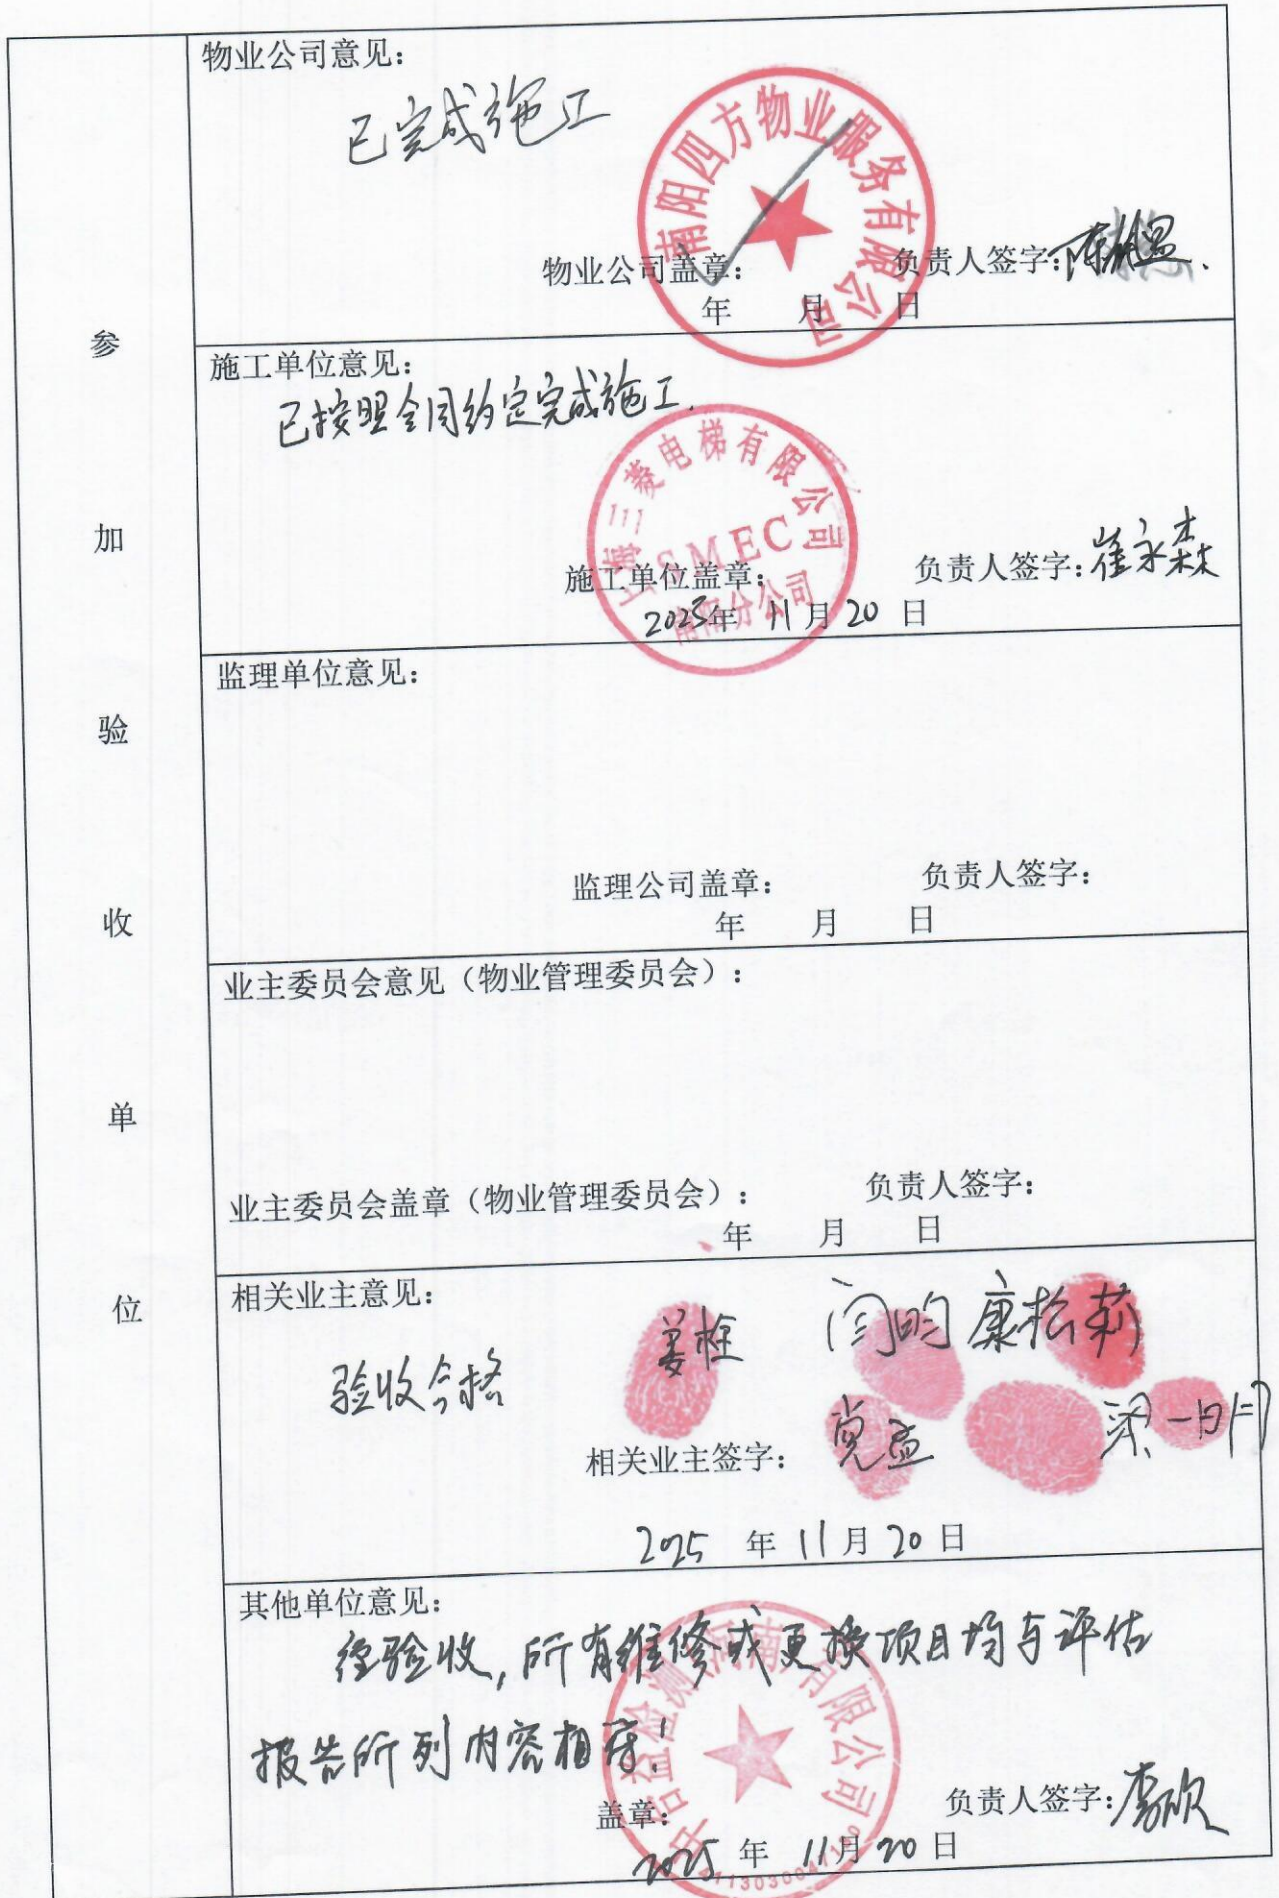 参加验收单位
物业公司意见：
已完成施工
南阳四方物业服务有限公司
物业公司盖章： 负责人签字：
年 月 日
施工单位意见：
已按照合同约定完成施工.
上海三菱电梯有限公司
SMEC
南阳分公司
施工单位盖章： 负责人签字：崔永森
2025年 11月20日
监理单位意见：
监理公司盖章： 负责人签字：
年 月 日
业主委员会意见（物业管理委员会）：
业主委员会盖章（物业管理委员会）： 负责人签字：
年 月 日
相关业主意见：
姜栓 闫昀 康松莉
验收合格
相关业主签字：
2025 年 11月20日
其他单位意见：
经验收，所有维修或更换项目均与评估
报告所列内容相符！
检测(河南)有限公司
盖章： 负责人签字：李欣
2025 年 11月20日